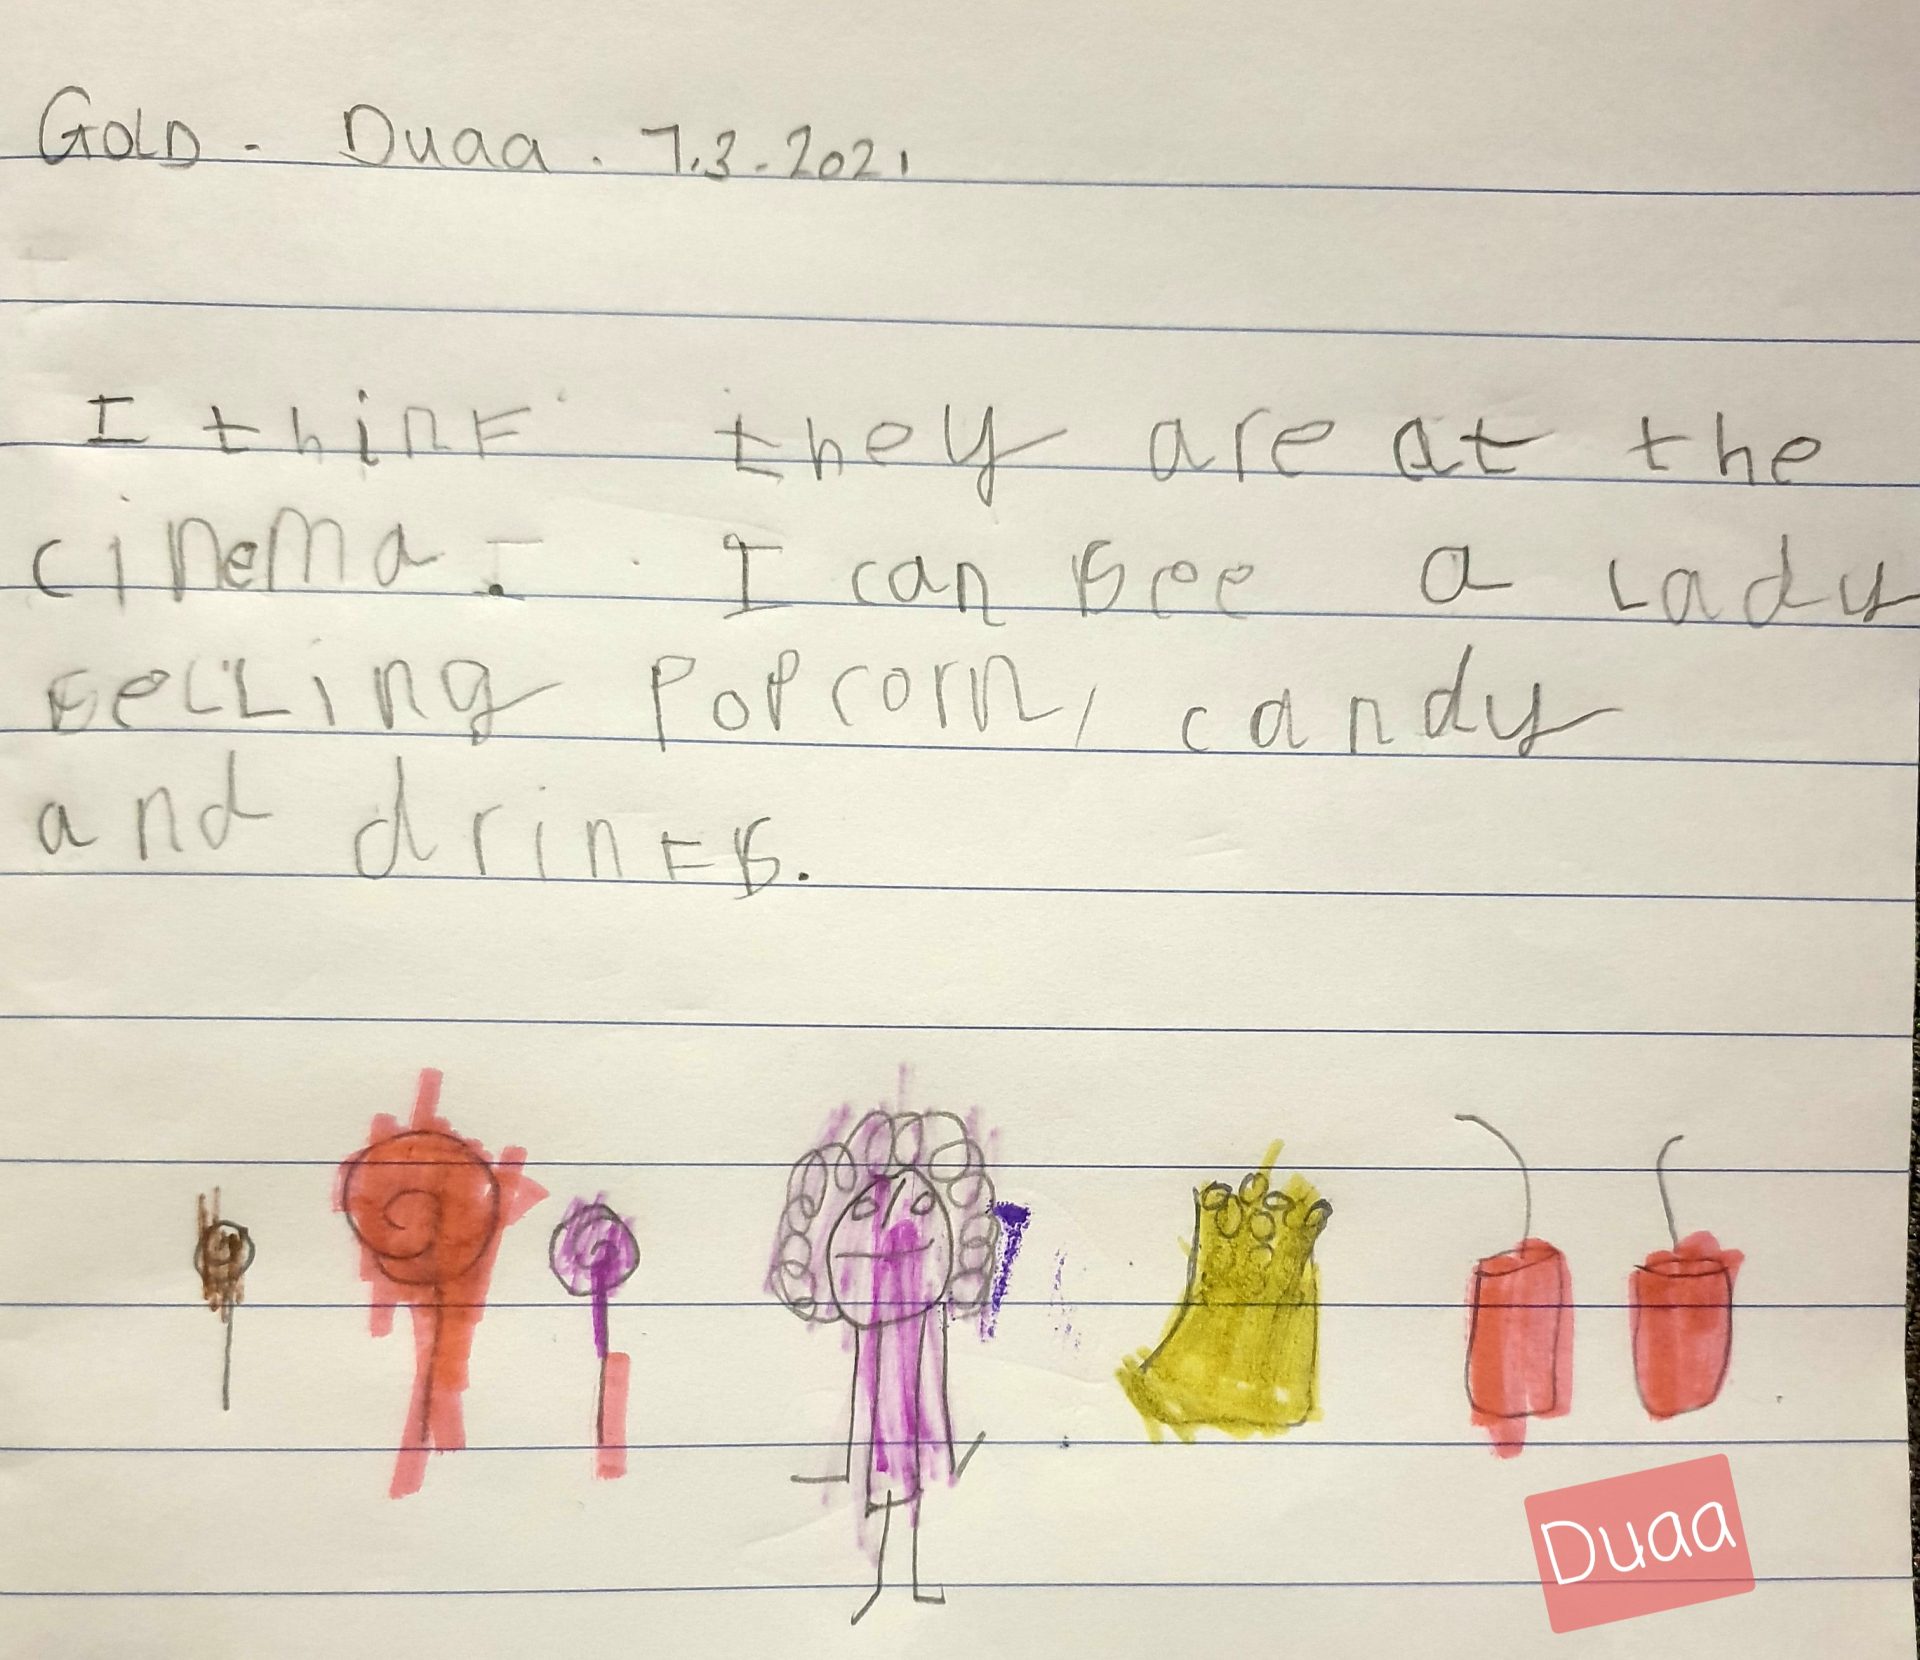 GOLD - Duaa. 7.3-2021
I think they are at the
cinema. I can see a Lady
seLLing PoPcorn, candy
and drinks.
Duaa